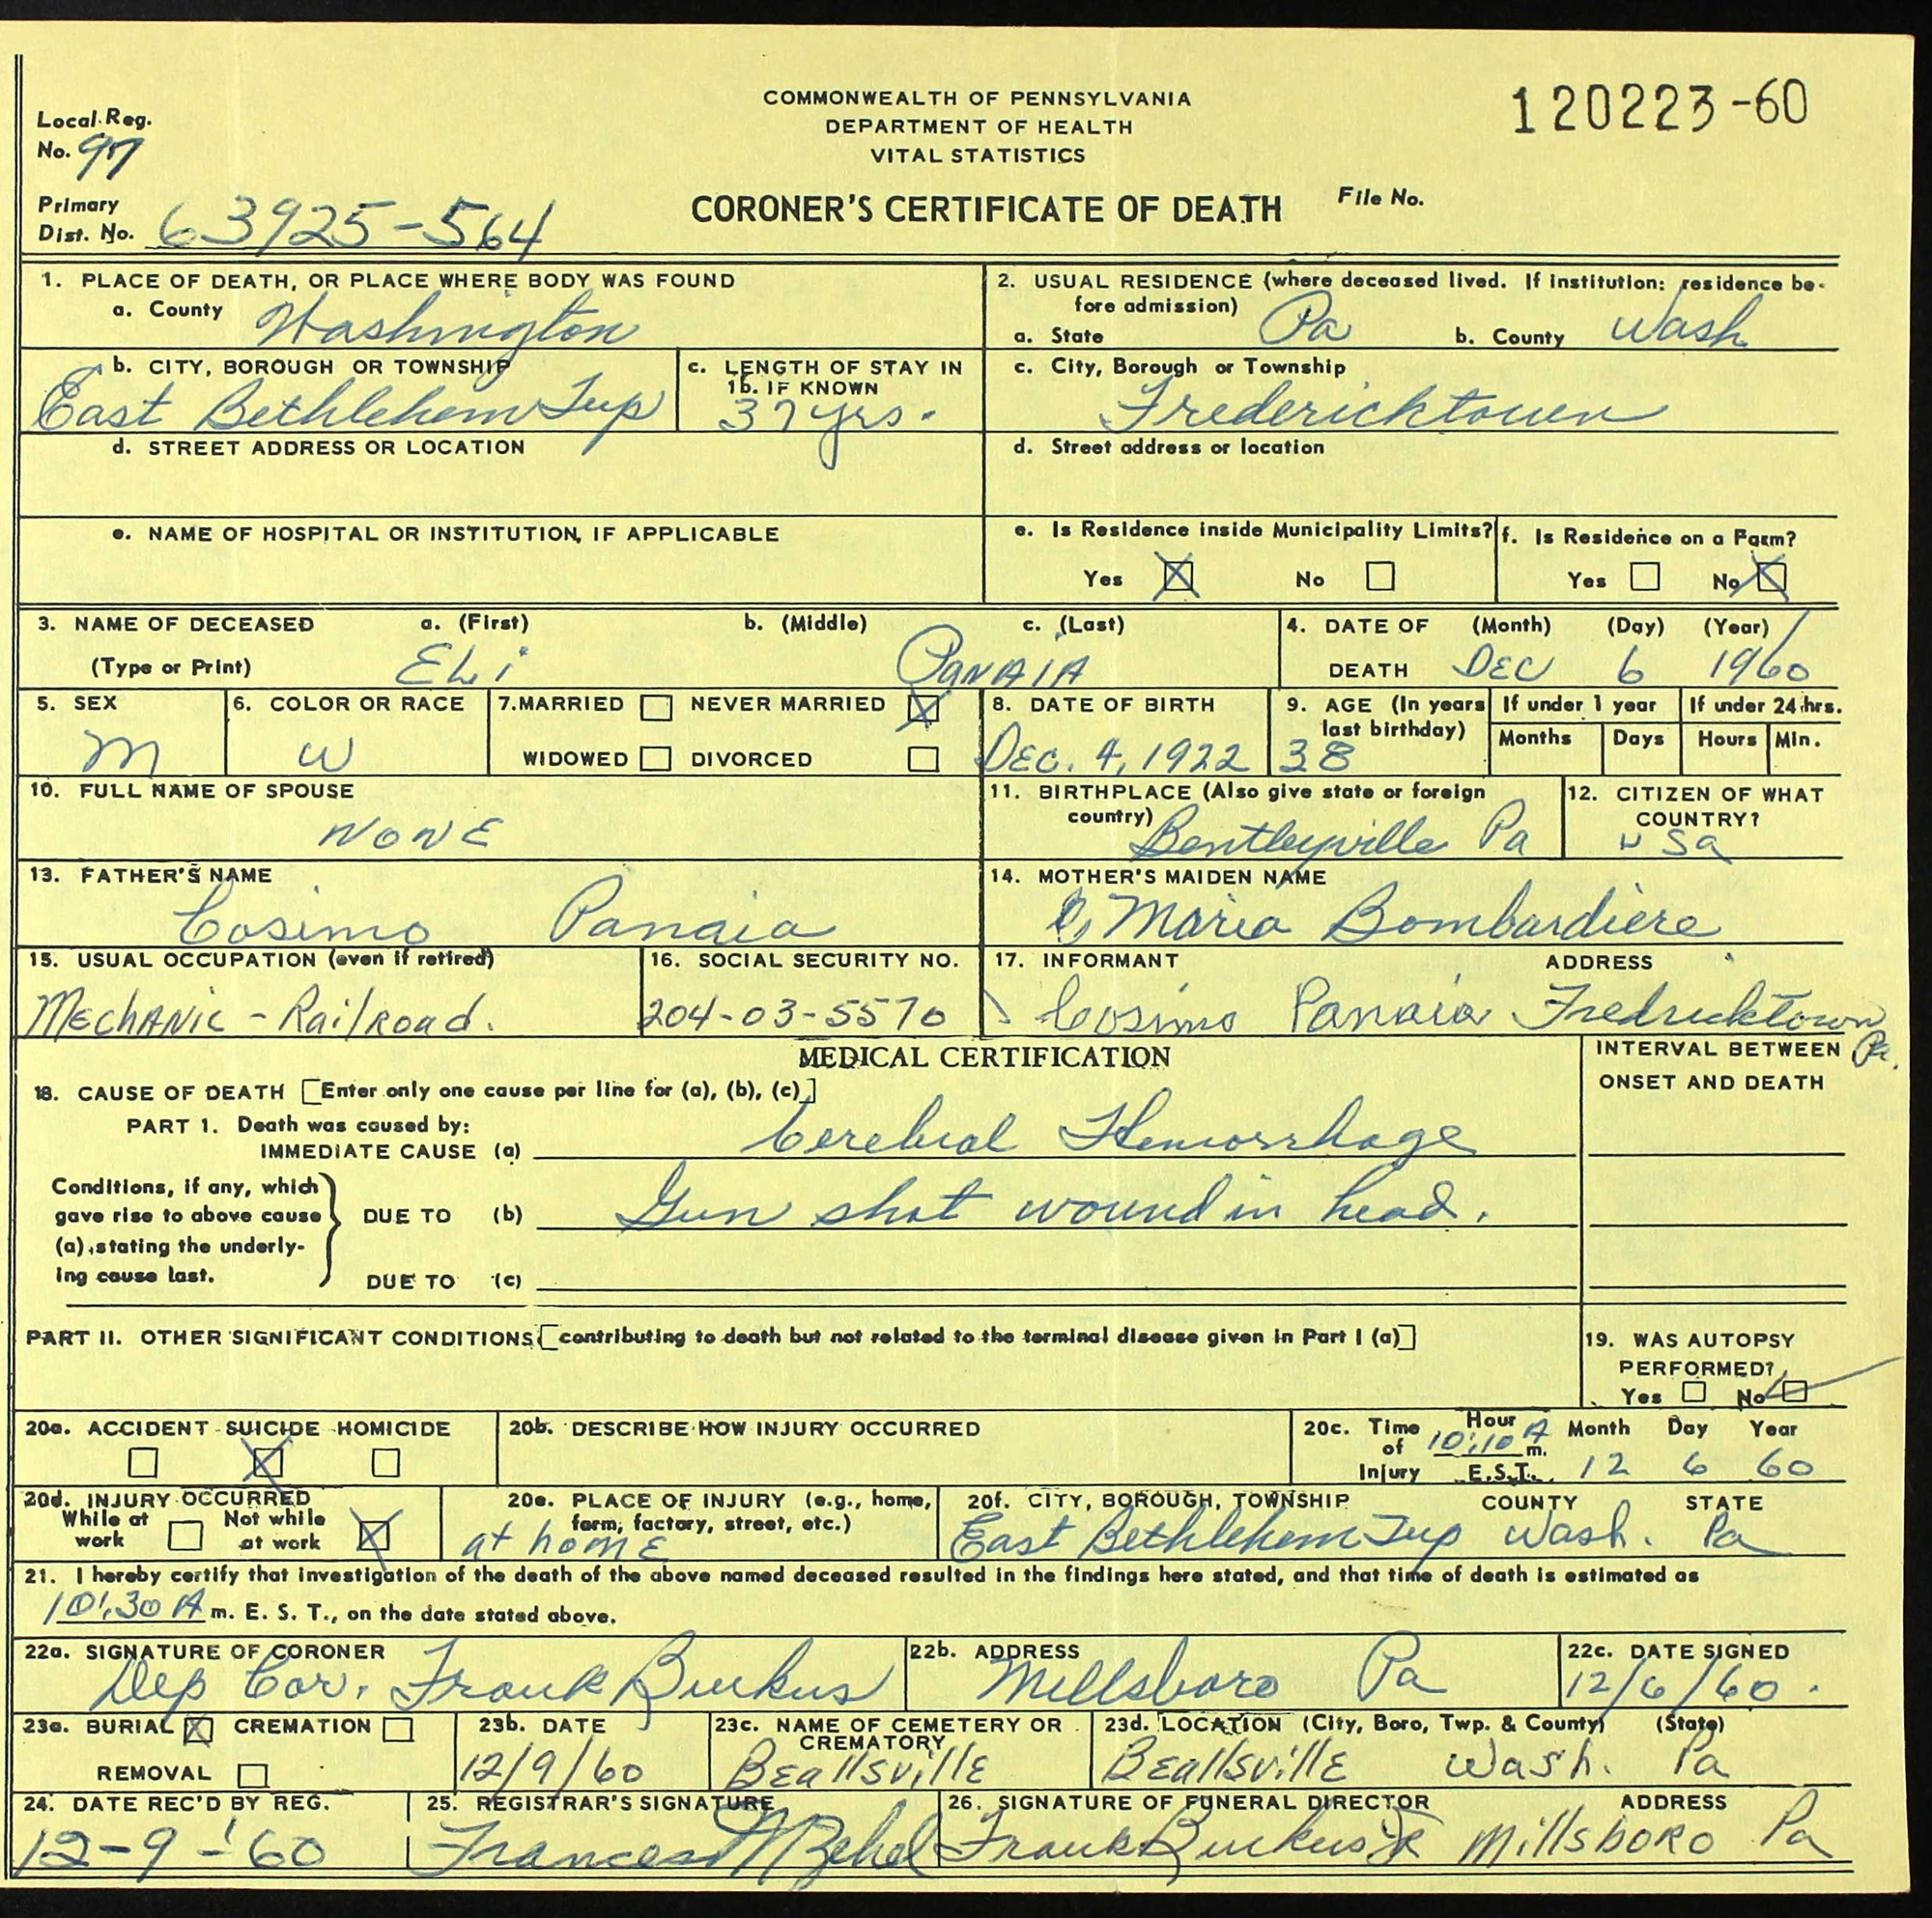 Local Reg.
No. 97
COMMONWEALTH OF PENNSYLVANIA
DEPARTMENT OF HEALTH
VITAL STATISTICS
120223-60
Primary
Dist. No. 63925-564
CORONER'S CERTIFICATE OF DEATH
File No.
1. PLACE OF DEATH, OR PLACE WHERE BODY WAS FOUND
a. County Washington
2. USUAL RESIDENCE (where deceased lived. If institution: residence be-
fore admission)
a. State Pa b. County Wash
b. CITY, BOROUGH OR TOWNSHIP
East Bethlehem Twp
c. LENGTH OF STAY IN
1b. IF KNOWN
37 yrs.
c. City, Borough or Township
Fredericktown
d. STREET ADDRESS OR LOCATION
d. Street address or location
e. NAME OF HOSPITAL OR INSTITUTION, IF APPLICABLE
e. Is Residence inside Municipality Limits?
Yes X No
f. Is Residence on a Farm?
Yes No X
3. NAME OF DECEASED a. (First) b. (Middle) c. (Last)
(Type or Print) Eli Panaia
4. DATE OF (Month) (Day) (Year)
DEATH Dec 6 1960
5. SEX
M
6. COLOR OR RACE
W
7. MARRIED NEVER MARRIED X
WIDOWED DIVORCED
8. DATE OF BIRTH
Dec. 4, 1922
9. AGE (In years
last birthday)
38
If under 1 year
Months Days
If under 24 hrs.
Hours Min.
10. FULL NAME OF SPOUSE
NONE
11. BIRTHPLACE (Also give state or foreign
country) Bentleyville Pa
12. CITIZEN OF WHAT
COUNTRY?
USA
13. FATHER'S NAME
Cosimo Panaia
14. MOTHER'S MAIDEN NAME
Maria Bombardiere
15. USUAL OCCUPATION (even if retired)
Mechanic - Railroad.
16. SOCIAL SECURITY NO.
204-03-5570
17. INFORMANT ADDRESS
Cosimo Panaia Fredricktown
Pa.
MEDICAL CERTIFICATION
INTERVAL BETWEEN
ONSET AND DEATH
18. CAUSE OF DEATH [Enter only one cause per line for (a), (b), (c)]
PART 1. Death was caused by:
IMMEDIATE CAUSE (a) Cerebral Hemorrhage
Conditions, if any, which
gave rise to above cause
(a), stating the underly-
ing cause last.
DUE TO (b) Gun shot wound in head.
DUE TO (c)
PART II. OTHER SIGNIFICANT CONDITIONS [contributing to death but not related to the terminal disease given in Part I (a)]
19. WAS AUTOPSY
PERFORMED?
Yes No
20a. ACCIDENT SUICIDE HOMICIDE
X
20b. DESCRIBE HOW INJURY OCCURRED
20c. Time Hour Month Day Year
of 10:10 A m.
Injury E.S.T. 12 6 60
20d. INJURY OCCURRED
While at Not while
work at work X
20e. PLACE OF INJURY (e.g., home,
farm, factory, street, etc.)
at home
20f. CITY, BOROUGH, TOWNSHIP COUNTY STATE
East Bethlehem Twp Wash. Pa
21. I hereby certify that investigation of the death of the above named deceased resulted in the findings here stated, and that time of death is estimated as
10:30 A m. E. S. T., on the date stated above.
22a. SIGNATURE OF CORONER
Dep Cor. Frank Burkus
22b. ADDRESS
Millsboro Pa
22c. DATE SIGNED
12/6/60.
23a. BURIAL X CREMATION
REMOVAL
23b. DATE
12/9/60
23c. NAME OF CEMETERY OR
CREMATORY
Beallsville
23d. LOCATION (City, Boro, Twp. & County) (State)
Beallsville Wash. Pa
24. DATE REC'D BY REG.
12-9-'60
25. REGISTRAR'S SIGNATURE
Frances M
26. SIGNATURE OF FUNERAL DIRECTOR ADDRESS
Frank Burkus Jr Millsboro Pa